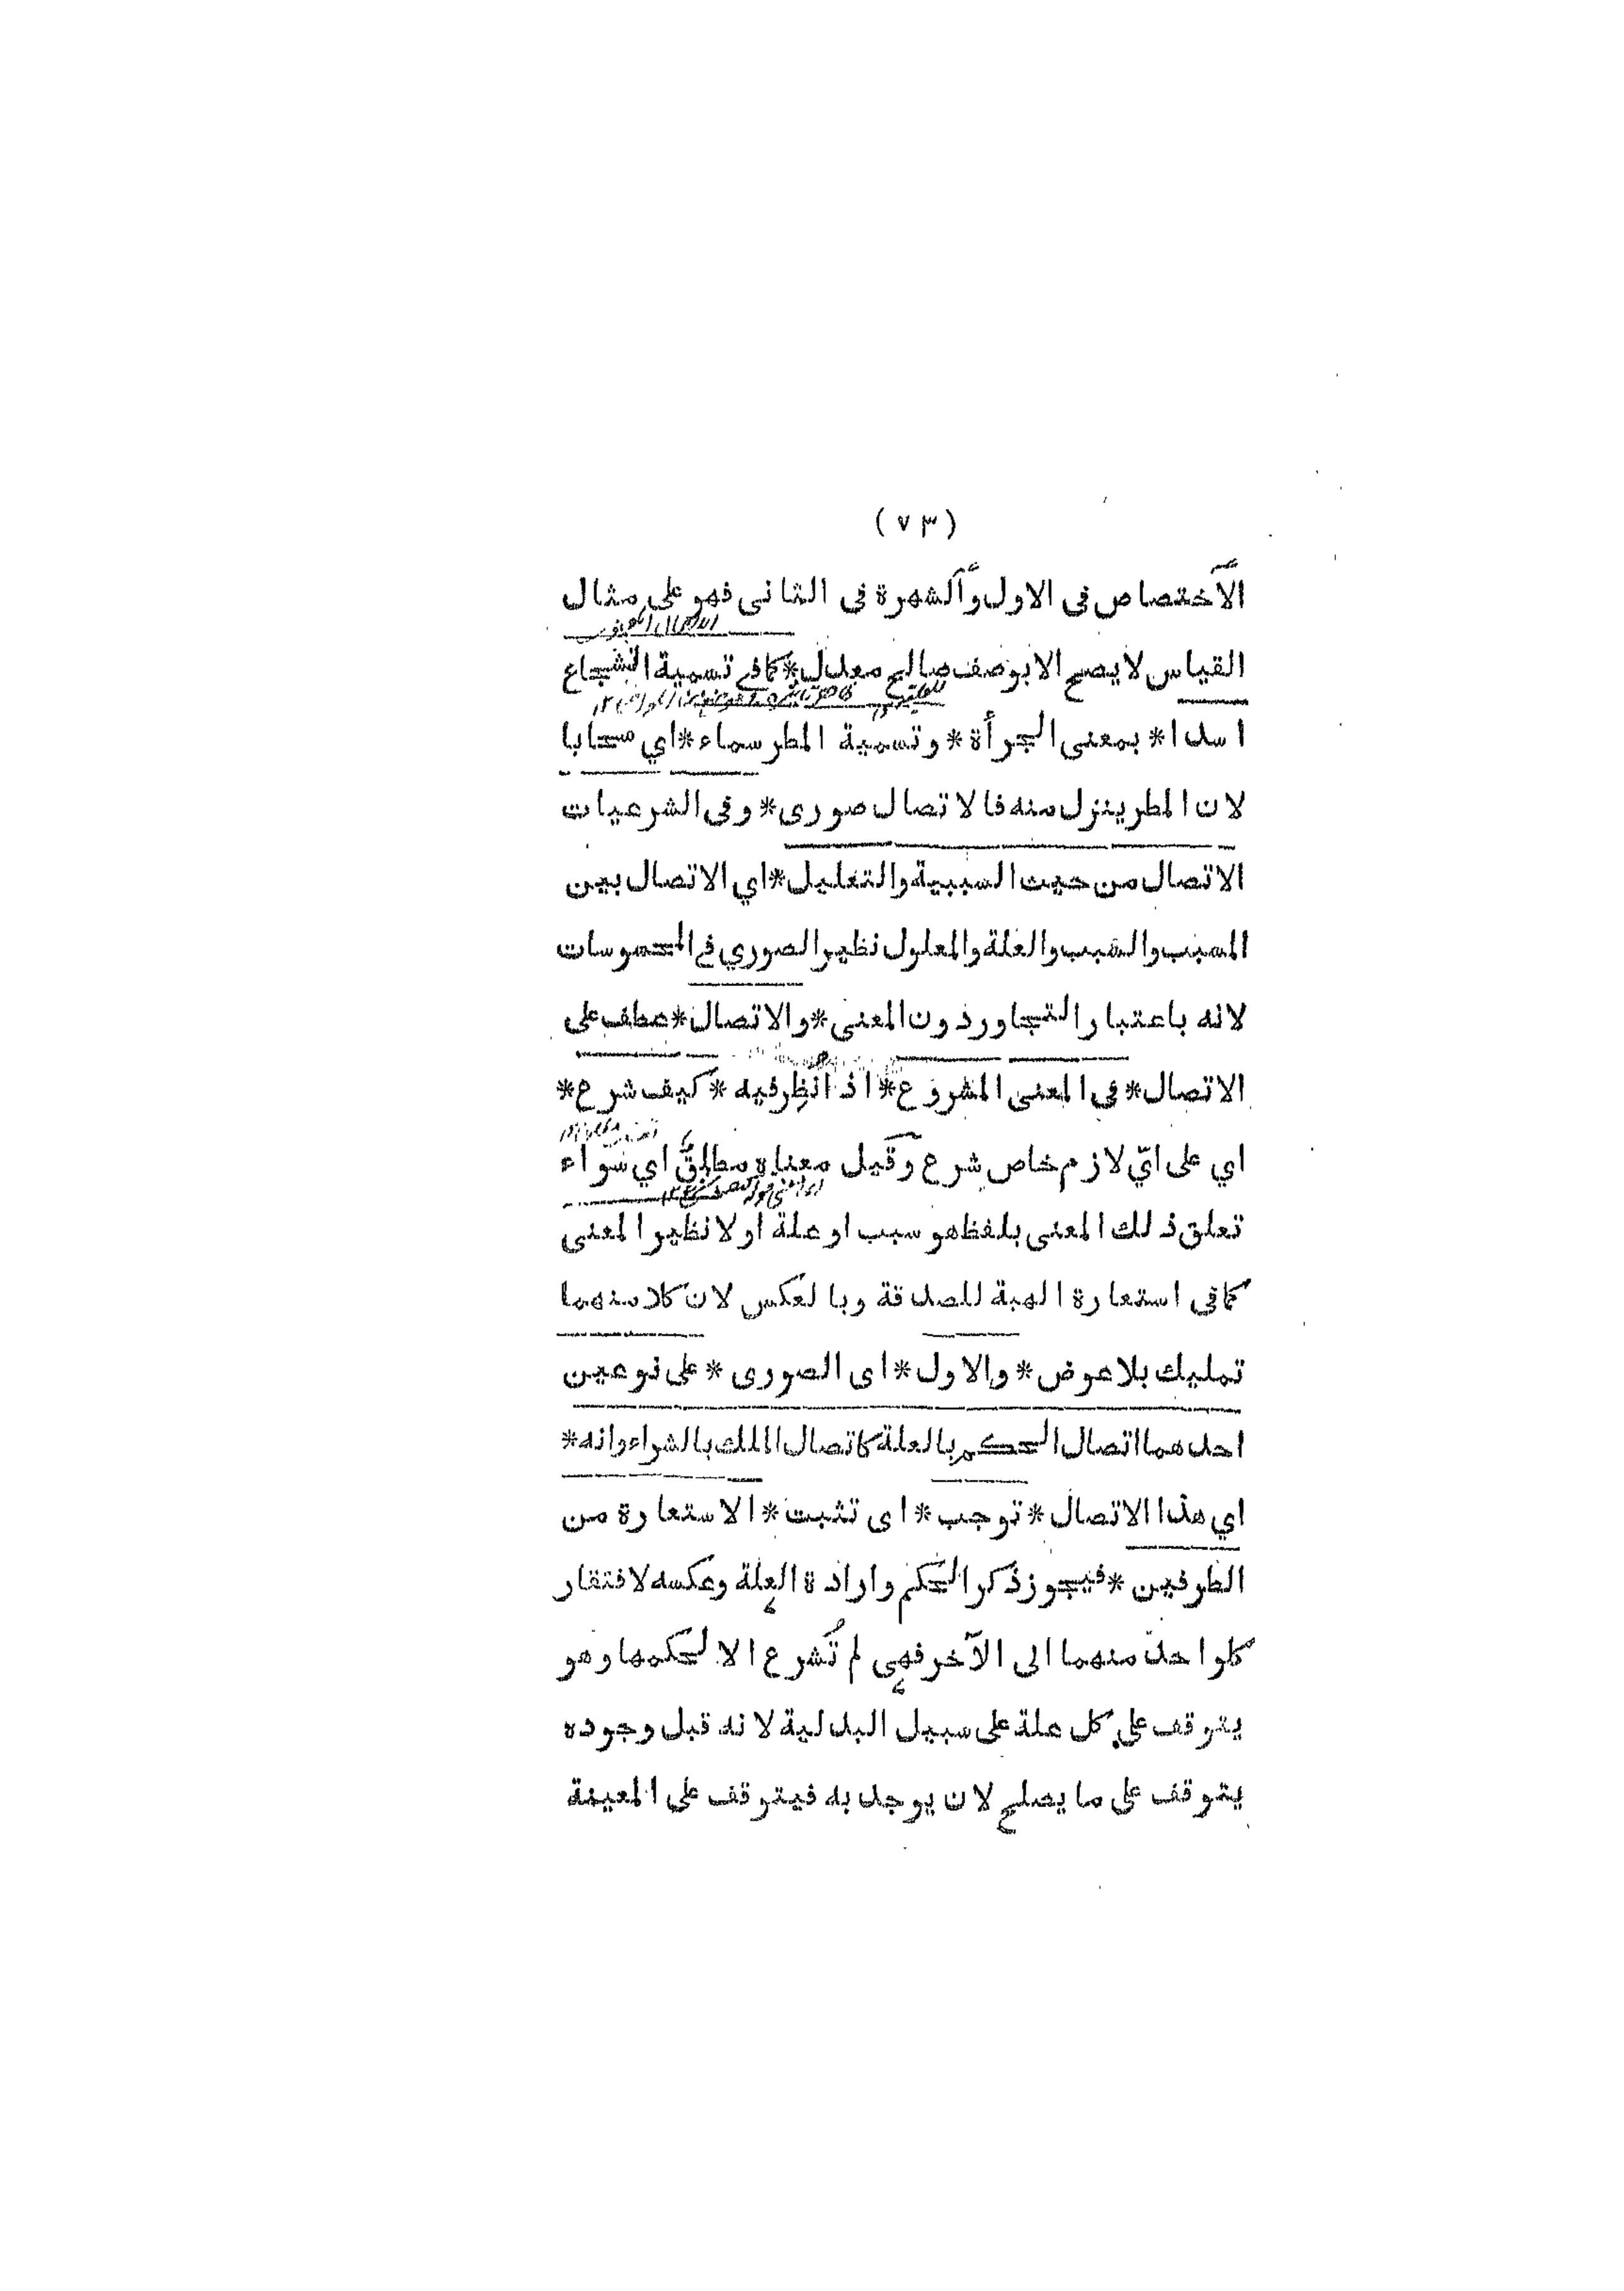 (٧٣)
الاختصاص فى الاول والشهرة فى الثانى فهو على مثال
القياس لا يصح الا بوصف صالح معلل * كما فى تسمية الشجاع
اسدا * بمعنى الجرأة * وتسمية المطر سماء * اي سحابا
لان المطر ينزل منه فالاتصال صورى * وفى الشرعيات
الاتصال من حيث السببية والتعليل * اي الاتصال بين
المسبب والسبب والعلة والمعلول نظير الصوري فى المحسوسات
لانه باعتبار التجاور دون المعنى * والاتصال * عطف على
الاتصال * فى المعنى المشروع * اذا نظر فيه * كيف شرع *
اي على ايّ لازم خاص شرع وقيل معناه مطلق اي سواء
تعلق ذلك المعنى بلفظ هو سبب او علة او لا نظير المعنى
كما فى استعارة الهبة للصدقة وبالعكس لان كلا منهما
تمليك بلا عوض * والاول * اى الصورى * على نوعين
احدهما اتصال الحكم بالعلة كاتصال الملك بالشراء وانه *
اي هذا الاتصال * توجب * اى تثبت * الاستعارة من
الطرفين * فيجوز ذكر الحكم وارادة العلة وعكسه لافتقار
كل واحد منهما الى الآخر فهى لم تُشرع الا لحكمها وهو
يتوقف على كل علة على سبيل البدلية لانه قبل وجوده
يتوقف على ما يصلح لان يوجد به فيتوقف على المعينة